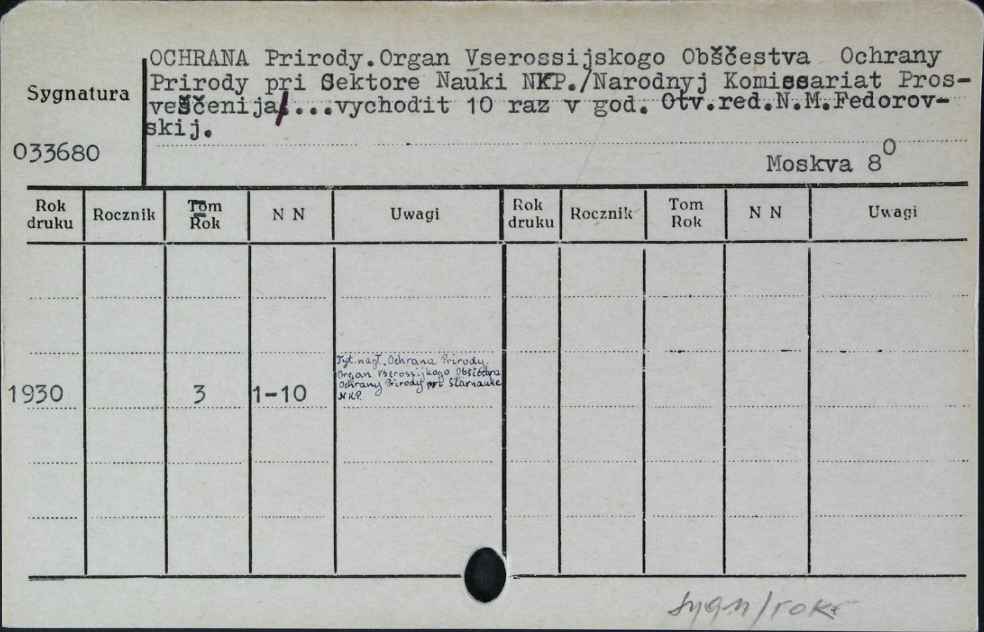 OCHRANA Prirody.Organ Vserossijskogo Obščestva Ochrany
Prirody pri Sektore Nauki NKP./Narodnyj Komissariat Pros-
veščenija/...vychodit 10 raz v god. Otv.red.N.M.Fedorov-
skij.
Sygnatura
033680
Moskva 8⁰
Rok druku Rocznik Tom Rok N N Uwagi Rok druku Rocznik Tom Rok N N Uwagi
Tyt. nagł. Ochrana Prirody
Organ Vserossijskogo Obščestva
Ochrany Prirody pri
NKP.
1930 3 1-10
sygn/rok